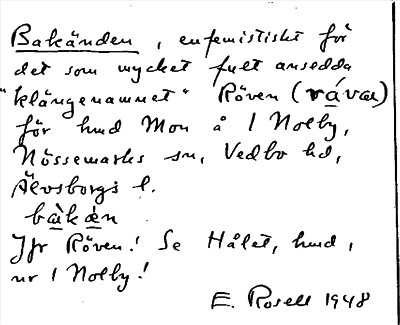 Bakänden, eufemistiskt för
det som mycket fult ansedda
"klängenamnet" Röven (rá̱var)
för hmd Mon å 1 Nolby,
Nössemarks sn, Vedbo hd,
Älvsborgs l.
bà̱kè̱n
Jfr Röven! Se Hålet, hmd,
ur 1 Nolby!
E. Rosell 1948